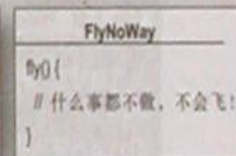 FlyNoWay
fly() {
// 什么事都不做，不会飞！
}